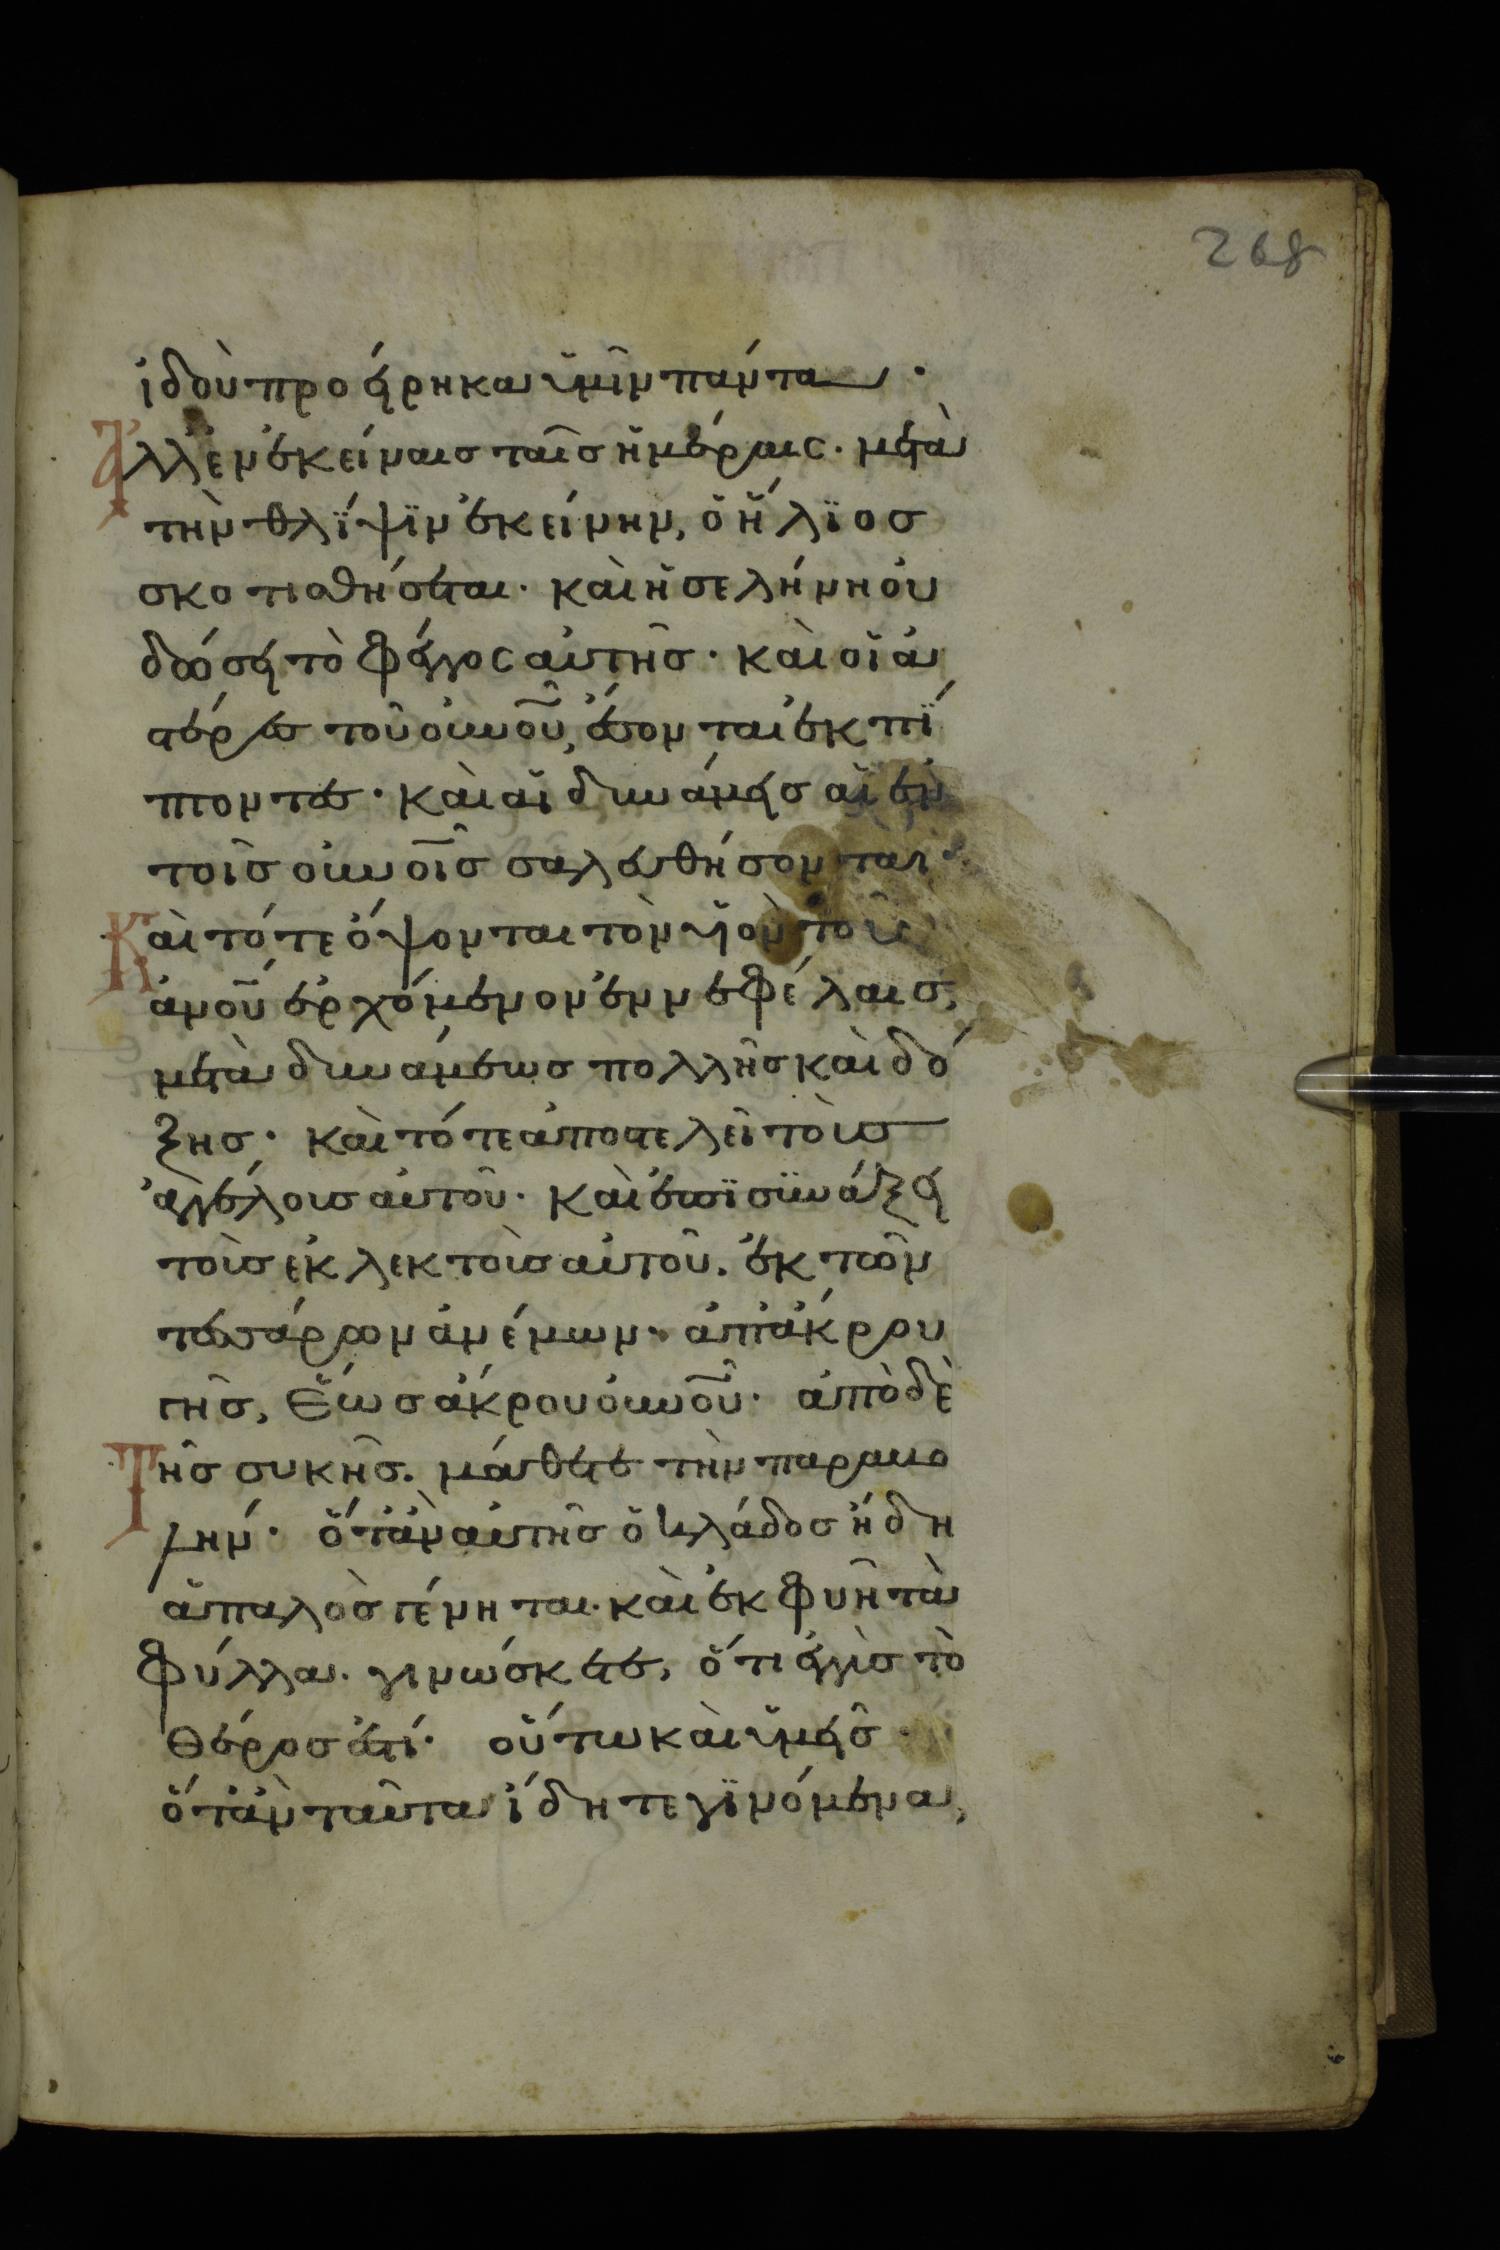 268
ἰδοὺ προείρηκα ὑμῖν πάντα·
Ἀλλ' ἐν ἐκείναις ταῖς ἡμέραις· μετὰ
τὴν θλΐψϊν ἐκείνην, ὁ ἥλϊος
σκοτισθήσεται· καὶ ἡ σελήνη οὐ
δώσει τὸ φέγγος αὐτῆς· καὶ οἱ ἀ
στέρες τοῦ οὐνοῦ, ἔσονται ἐκπί
πτοντες· καὶ αἱ δυνάμεις αἱ ἐν
τοῖς οὐνοῖς σαλευθήσονται·
Καὶ τότε ὄψονται τὸν ὑὸν τοῦ
ἀνοῦ ἐρχόμενον ἐν νεφέλαις,
μετὰ δυνάμεως πολλῆς καὶ δό
ξης· καὶ τότε ἀποστελεῖ τοὺς
ἀγγέλους αὐτοῦ· καὶ ἐπισϋνάξει
τοὺς ἐκλεκτοὺς αὐτοῦ. ἐκ τῶν
τεσσάρων ἀνέμων· ἀπ' ἄκρου
γῆς, ἕως ἄκρου οὐνοῦ· ἀπὸ δὲ
Τῆς συκῆς. μάθετε τὴν παραβο
λήν· ὅταν αὐτῆς ὁ κλάδος ἤδη
ἁπαλὸς γένηται· καὶ ἐκφυῆ τὰ
φύλλα· γινώσκετε, ὅτι ἐγγὺς τὸ
θέρος ἐστί· οὕτω καὶ ὑμεῖς·
ὅταν ταῦτα ἴδητε γϊνόμενα,